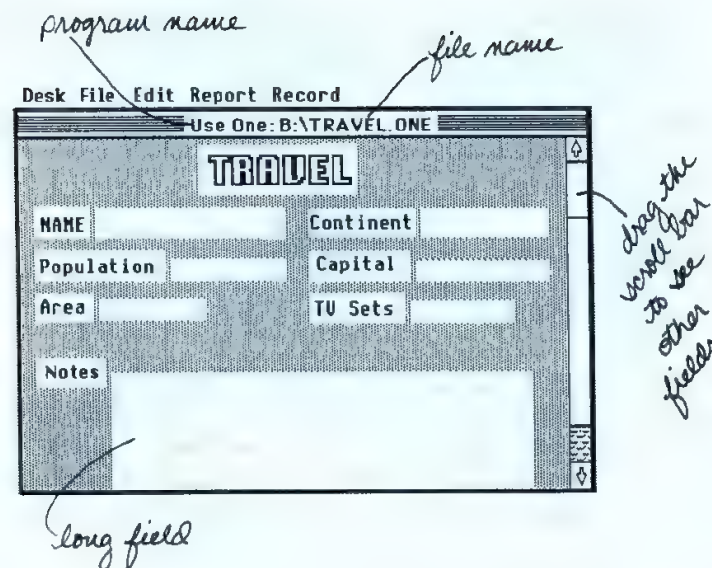 program name
file name
Desk File Edit Report Record
Use One: B:\TRAVEL.ONE
TRAVEL
NAME
Continent
Population
Capital
Area
TV Sets
Notes
drag the
scroll bar
to see
other
fields
long field